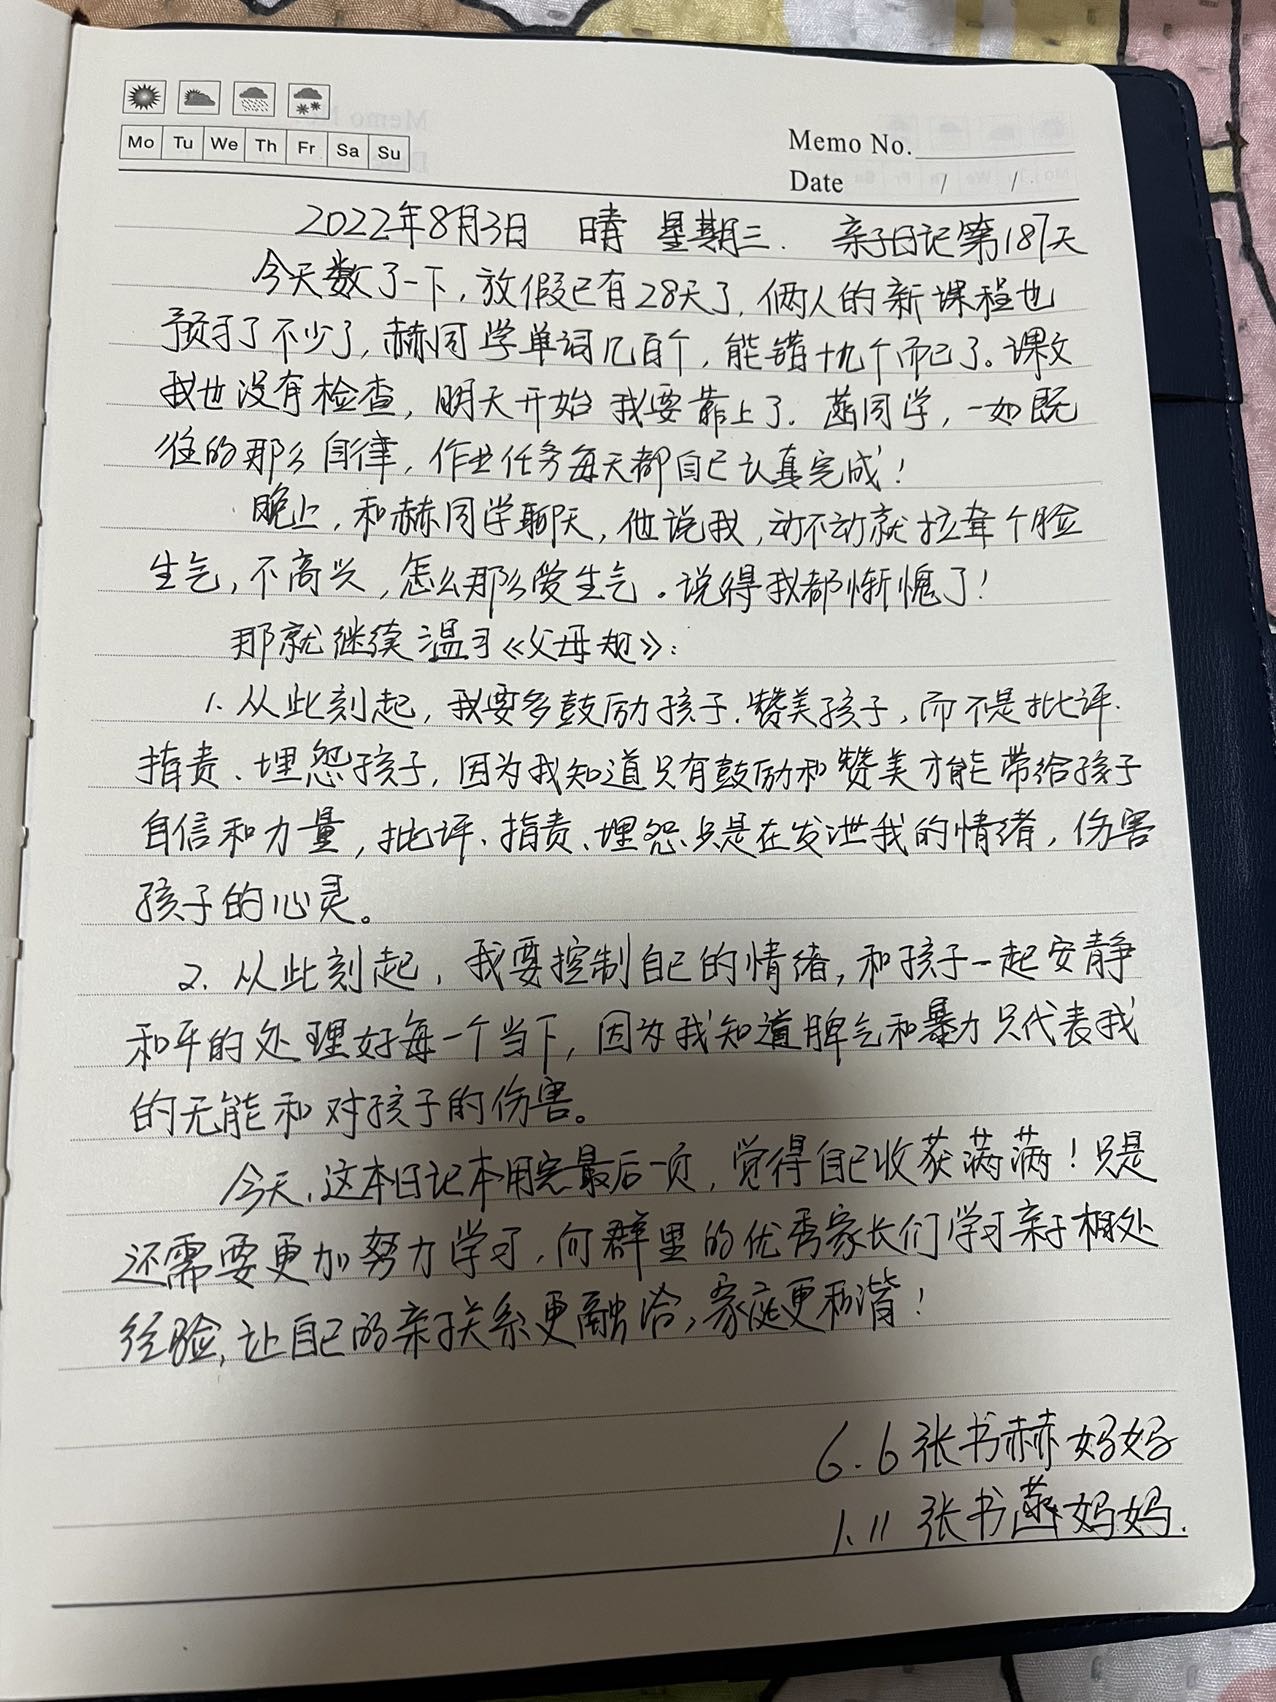 Mo Tu We Th Fr Sa Su
Memo No.
Date / /
2022年8月3日 晴 星期三. 亲子日记第187天
今天数了一下，放假已有28天了，俩人的新课程也
预习了不少了，赫同学单词几百个，能错十九个而已了。课文
我也没有检查，明天开始我要靠上了。菡同学，一如既
往的那么自律，作业任务每天都自己认真完成！
晚上，和赫同学聊天，他说我，动不动就拉耷个脸
生气，不高兴，怎么那么爱生气。说得我都惭愧了！
那就继续温习《父母规》：
1.从此刻起，我要多鼓励孩子.赞美孩子，而不是批评.
指责、埋怨孩子，因为我知道只有鼓励和赞美才能带给孩子
自信和力量，批评、指责、埋怨只是在发泄我的情绪，伤害
孩子的心灵。
2.从此刻起，我要控制自己的情绪，和孩子一起安静
和平的处理好每一个当下，因为我知道脾气和暴力只代表我
的无能和对孩子的伤害。
今天，这本日记本用完最后一页，觉得自己收获满满！只是
还需要更加努力学习，向群里的优秀家长们学习亲子相处
经验，让自己的亲子关系更融洽，家庭更和谐！
6.6张书赫妈妈
1.11张书菡妈妈.